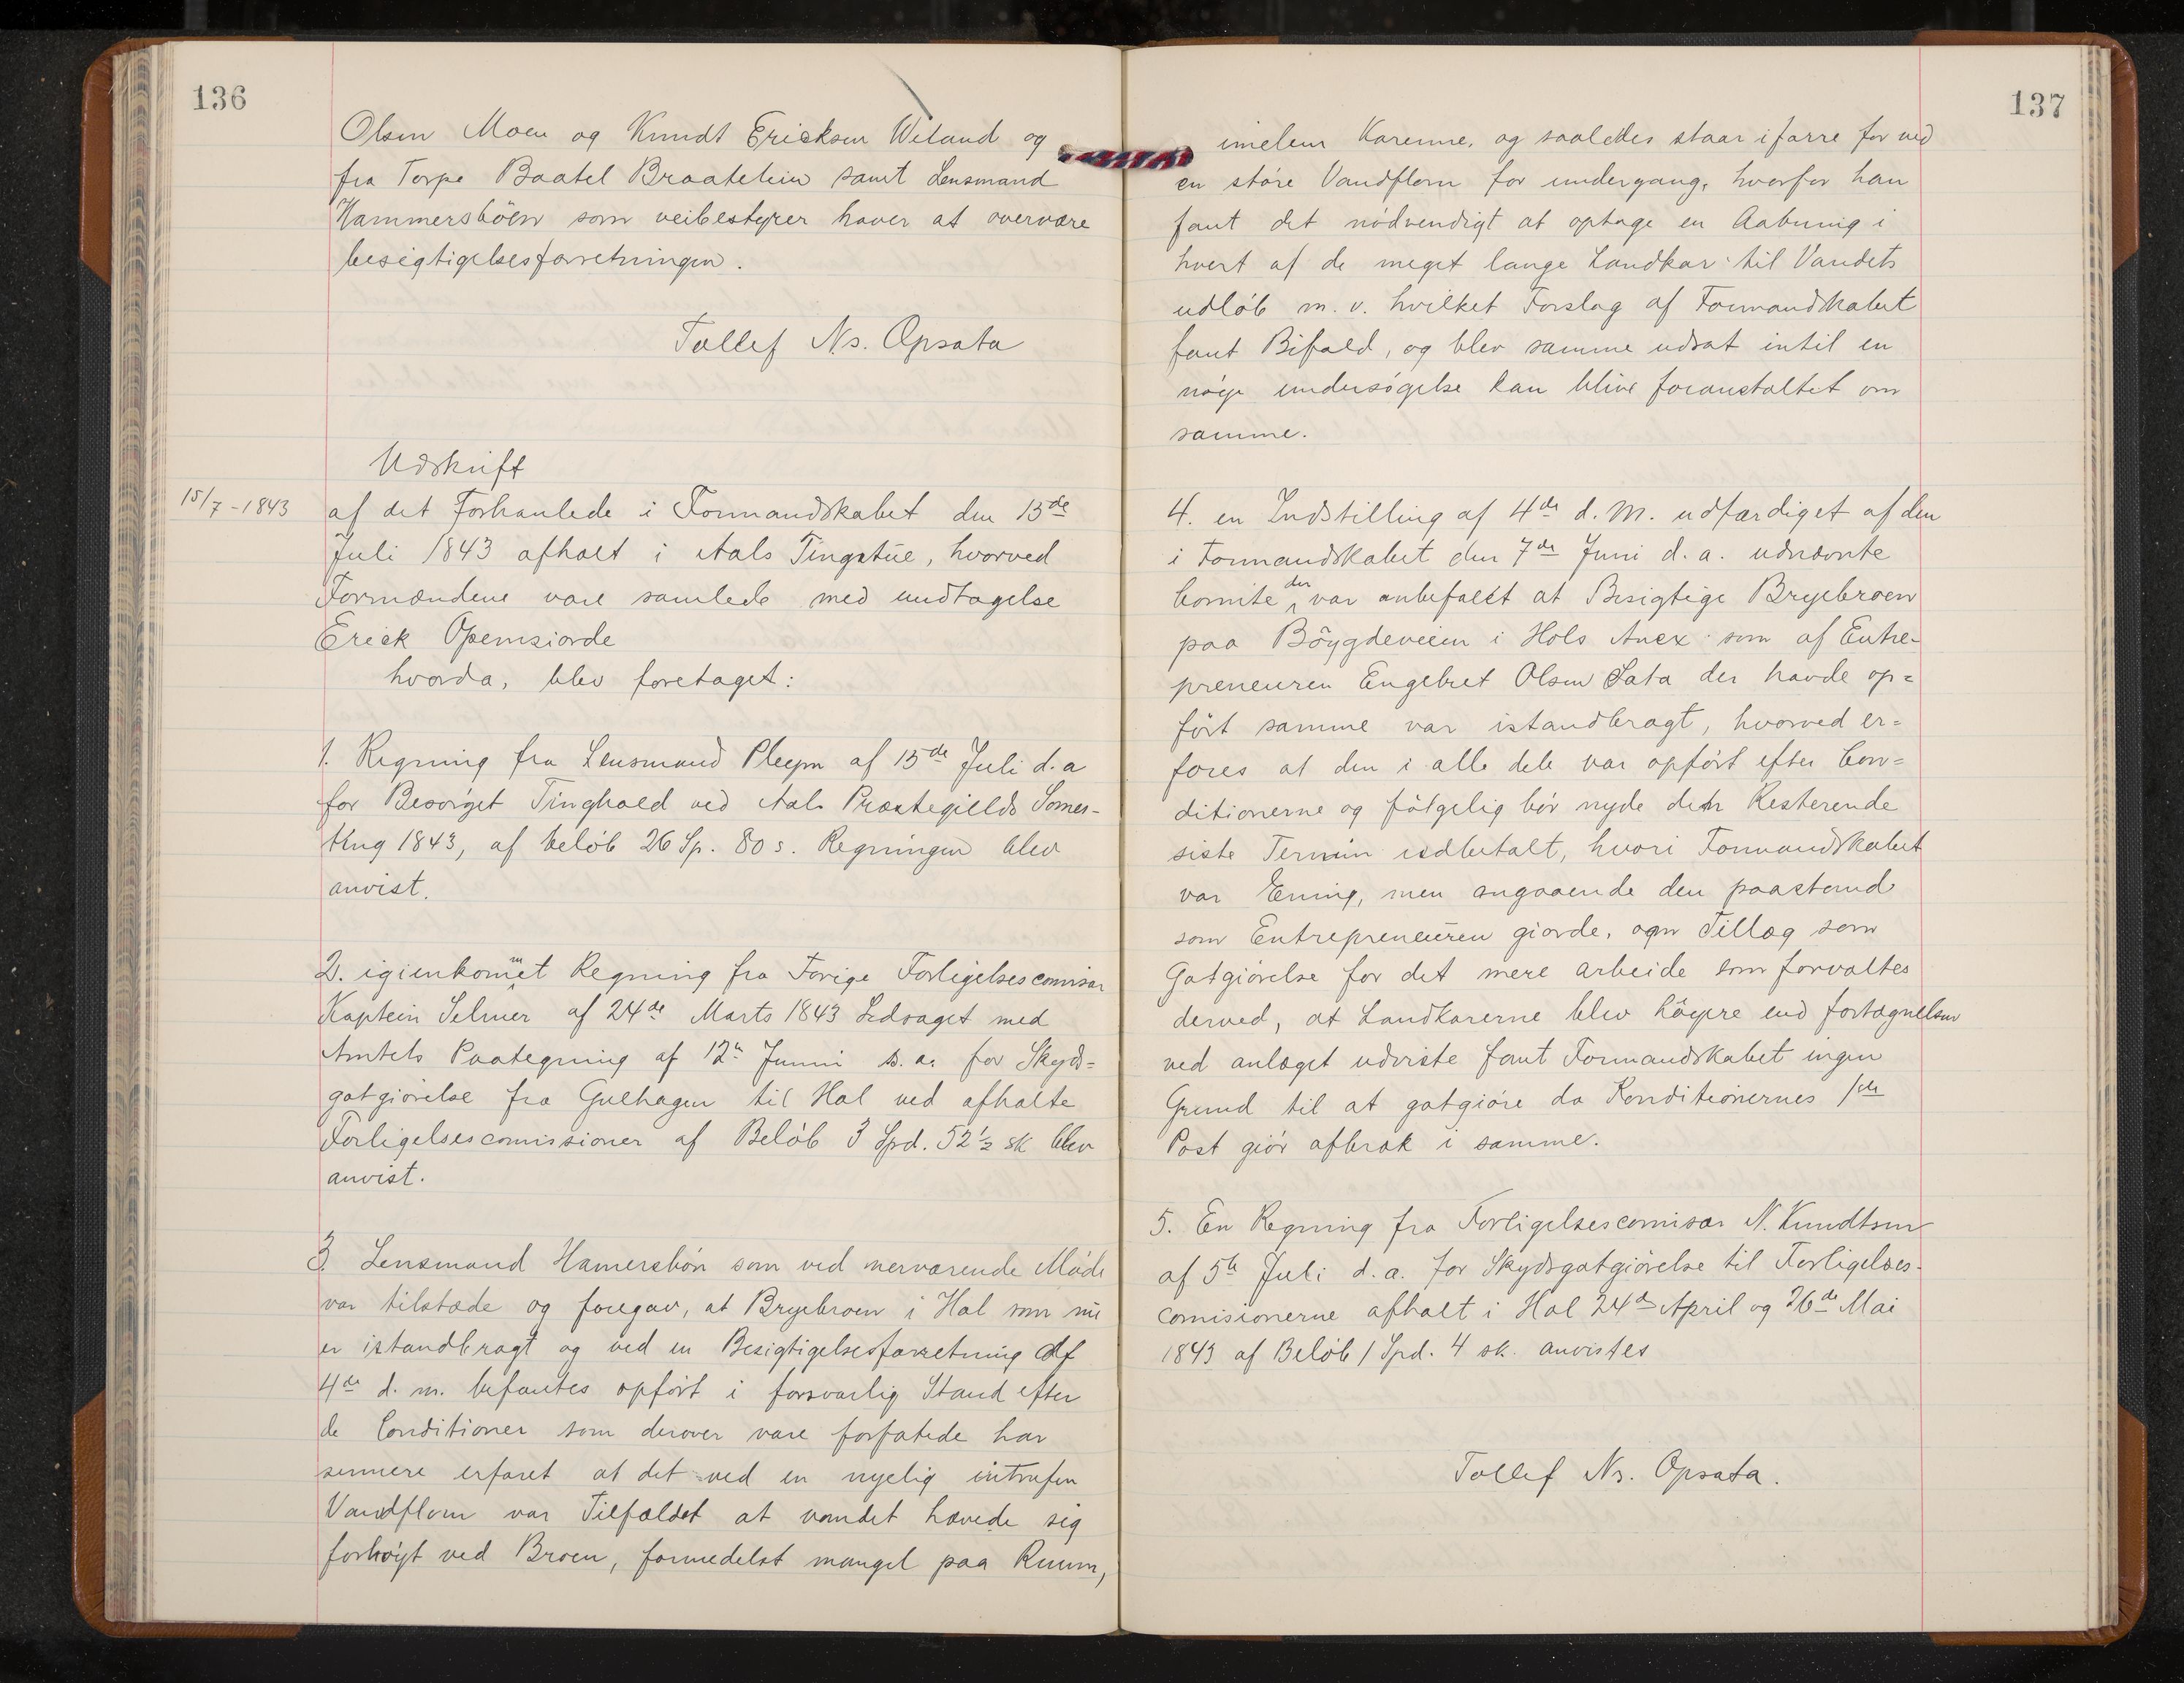 136
Olsen Moen og Knudt Ericksen Wiland og
fra Torpe Baatel Braatelien samt Lensmand
Hammersböen som veibestyrer haver at overvære
besigtigelsesforretningen.
Tollef Ns. Opsata
Udskrift
15/7-1843
af det Forhanlede i Formandskabet den 15de
Juli 1843 afholt i Aals Tingstue, hvorved
Formændene vare samlede med undtagelse
Erick Opemsiorde
hvorda, blev foretaget:
1. Regning fra Lensmand Pleym af 15de Juli d. a
for Besörget Tinghold ved Aals Præstegields Somer-
ting 1843, af belöb 26 Sp. 80 s. Regningen blev
anvist.
2. igienkomet Regning fra Forige Forligelsescomisær
Kaptein Selmer af 24de Marts 1843 Ledsaget med
Amtets Paategning af 12te Junni s. a. for Skyds=
gotgiörelse fra Gulhagen til Hol ved afholte
Forligelsescomissioner af Belöb 3 Spd. 52½ sk blev
anvist.
3. Lensmand Hamersbön som ved nerværende Möde
var tilstæde og foregav, at Bryebroen i Hol som nu
er istandbragt og ved en Besigtigelsesforretning af
4de d. m. befantes opfört i forsvarlig Stand efter
de Conditioner som derover vare forfatede har
sennere erfaret at det ved en nyelig intrufen
Vandflom var Tilfældet at vandet hævede sig
forhöyt ved Broen, formedelst mangel paa Ruum,
137
imelem Karenne, og saaledes staar i farre for ved
en störe Vandflom for undergang, hvorfor han
fant det nödvendigt at optage en Aabning i
hvert af de meget lange Landkar til Vandets
udlöb m. v. hvilket Forslag af Formandskabet
fant Bifald, og blev samme udsat intil en
nöye undersögelse kan blive foranstaltet om
samme.
4. en Indstilling af 4de d. M. udfærdiget af den
i Formandskabet den 7de Juni d. a. udnævnte
Comite der var anbefalet at Besigtige Bryebroen
paa Böygdeveien i Hols Anex som af Entre-
preneuren Engebret Olsen Sata der havde op=
fört samme var istandbragt, hvorved er=
fores at den i alle dele var opfört efter Con=
ditionerne og fölgelig bör nyde den Resterende
siste Termin udbetalt, hvori Formandskabet
var Ennig, men angaaende den paastand
som Entrepreneuren giorde, om Tillæg som
Gotgiörelse for det mere arbeide som forvoltes
derved, at Landkarerne blev höyere end fortegnelsen
ved anlæget udviste fant Formandskabet ingen
Grund til at gotgiöre da Konditionernes 1ste
Post giör afbræk i samme.
5. En Regning fra Forligelsescomisær N. Knudtsen
af 5te Juli d. a. for Skydsgotgiörelse til Forligelses-
comisionerne afholt i Hol 24de April og 26de Mai
1843 af Belöb 1 Spd. 4 sk. anvistes
Tollef Ns. Opsata.